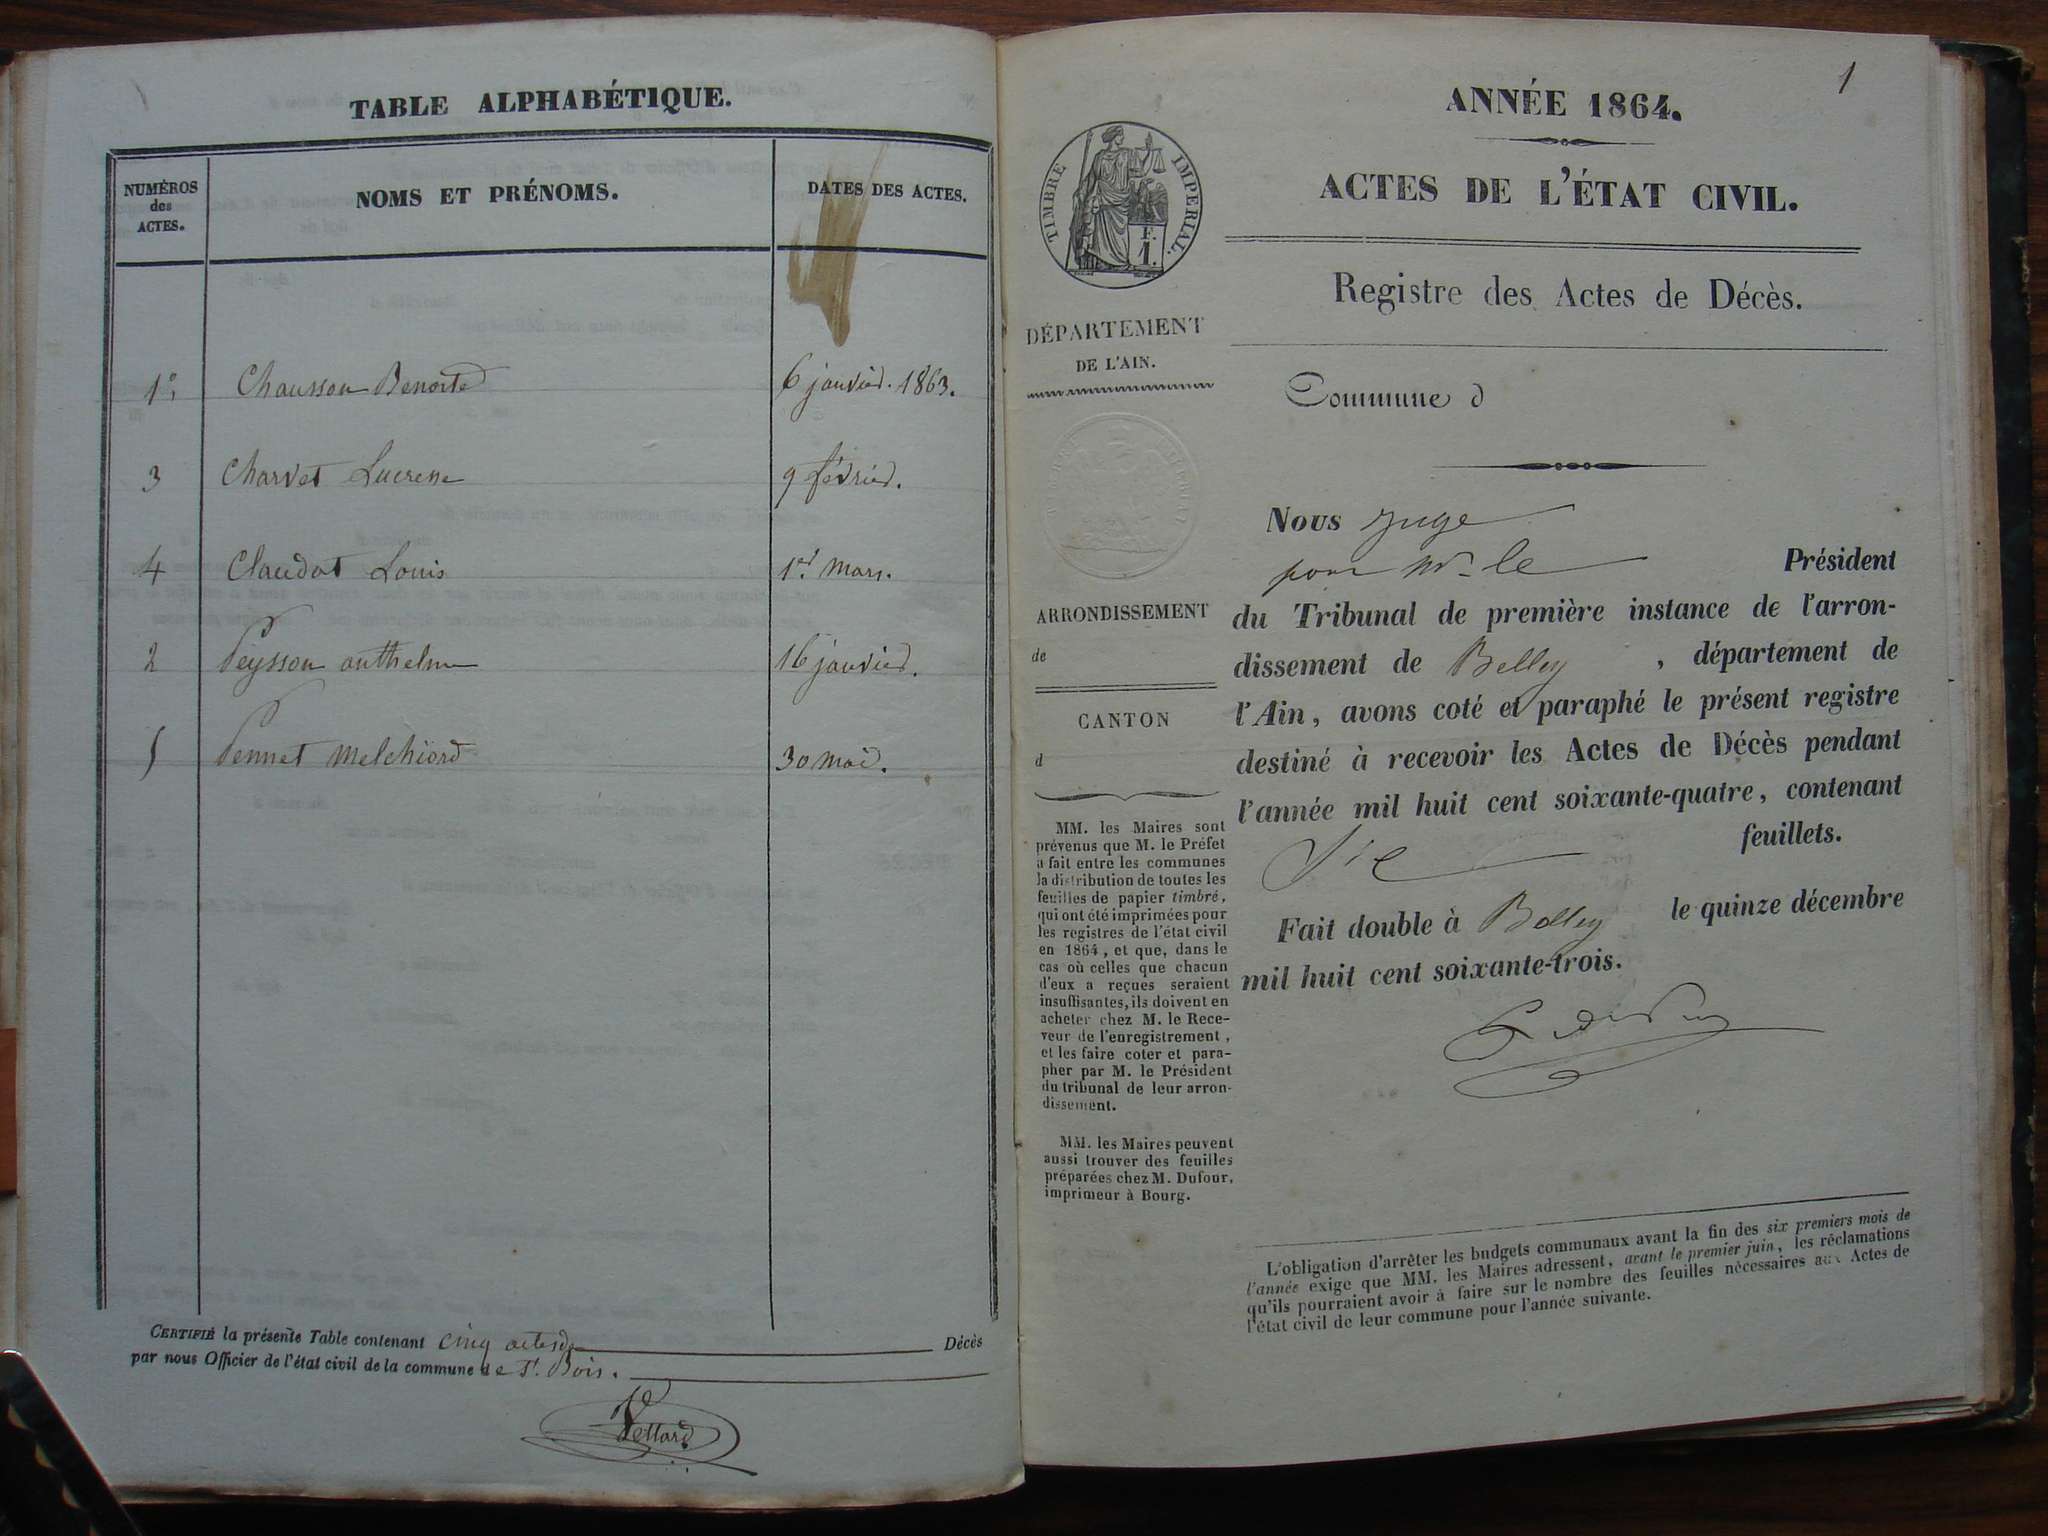 TABLE ALPHABÉTIQUE.
NUMÉROS
des
ACTES.
NOMS ET PRÉNOMS.
DATES DES ACTES.
1° Chausson Benoite 6 janvier. 1863.
3 Charvet Lucresse 9 février.
4 Claudat Louis 1er mars.
2 Peysson anthelme 16 janvier.
5 Pennet Melchiord 30 mai.
CERTIFIÉ la présente Table contenant cinq actes de Décès
par nous Officier de l'état civil de la commune de St. Bois.
1
ANNÉE 1864.
ACTES DE L'ÉTAT CIVIL.
Registre des Actes de Décès.
TIMBRE IMPERIAL.
F.
1.
DÉPARTEMENT
DE L'AIN.
ARRONDISSEMENT
de
CANTON
d
MM. les Maires sont
prévenus que M. le Préfet
a fait entre les communes
la distribution de toutes les
feuilles de papier timbré,
qui ont été imprimées pour
les registres de l'état civil
en 1864, et que, dans le
cas où celles que chacun
d'eux a reçues seraient
insuffisantes, ils doivent en
acheter chez M. le Rece-
veur de l'enregistrement,
et les faire coter et para-
pher par M. le Président
du tribunal de leur arron-
dissement.
MM. les Maires peuvent
aussi trouver des feuilles
préparées chez M. Dufour,
imprimeur à Bourg.
Commune d
Nous Juge
pour Mr le Président
du Tribunal de première instance de l'arron-
dissement de Belley, département de
l'Ain, avons coté et paraphé le présent registre
destiné à recevoir les Actes de Décès pendant
l'année mil huit cent soixante-quatre, contenant
feuillets.
Fait double à Belley le quinze décembre
mil huit cent soixante-trois.
L'obligation d'arrêter les budgets communaux avant la fin des six premiers mois de
l'année exige que MM. les Maires adressent, avant le premier juin, les réclamations
qu'ils pourraient avoir à faire sur le nombre des feuilles nécessaires aux Actes de
l'état civil de leur commune pour l'année suivante.